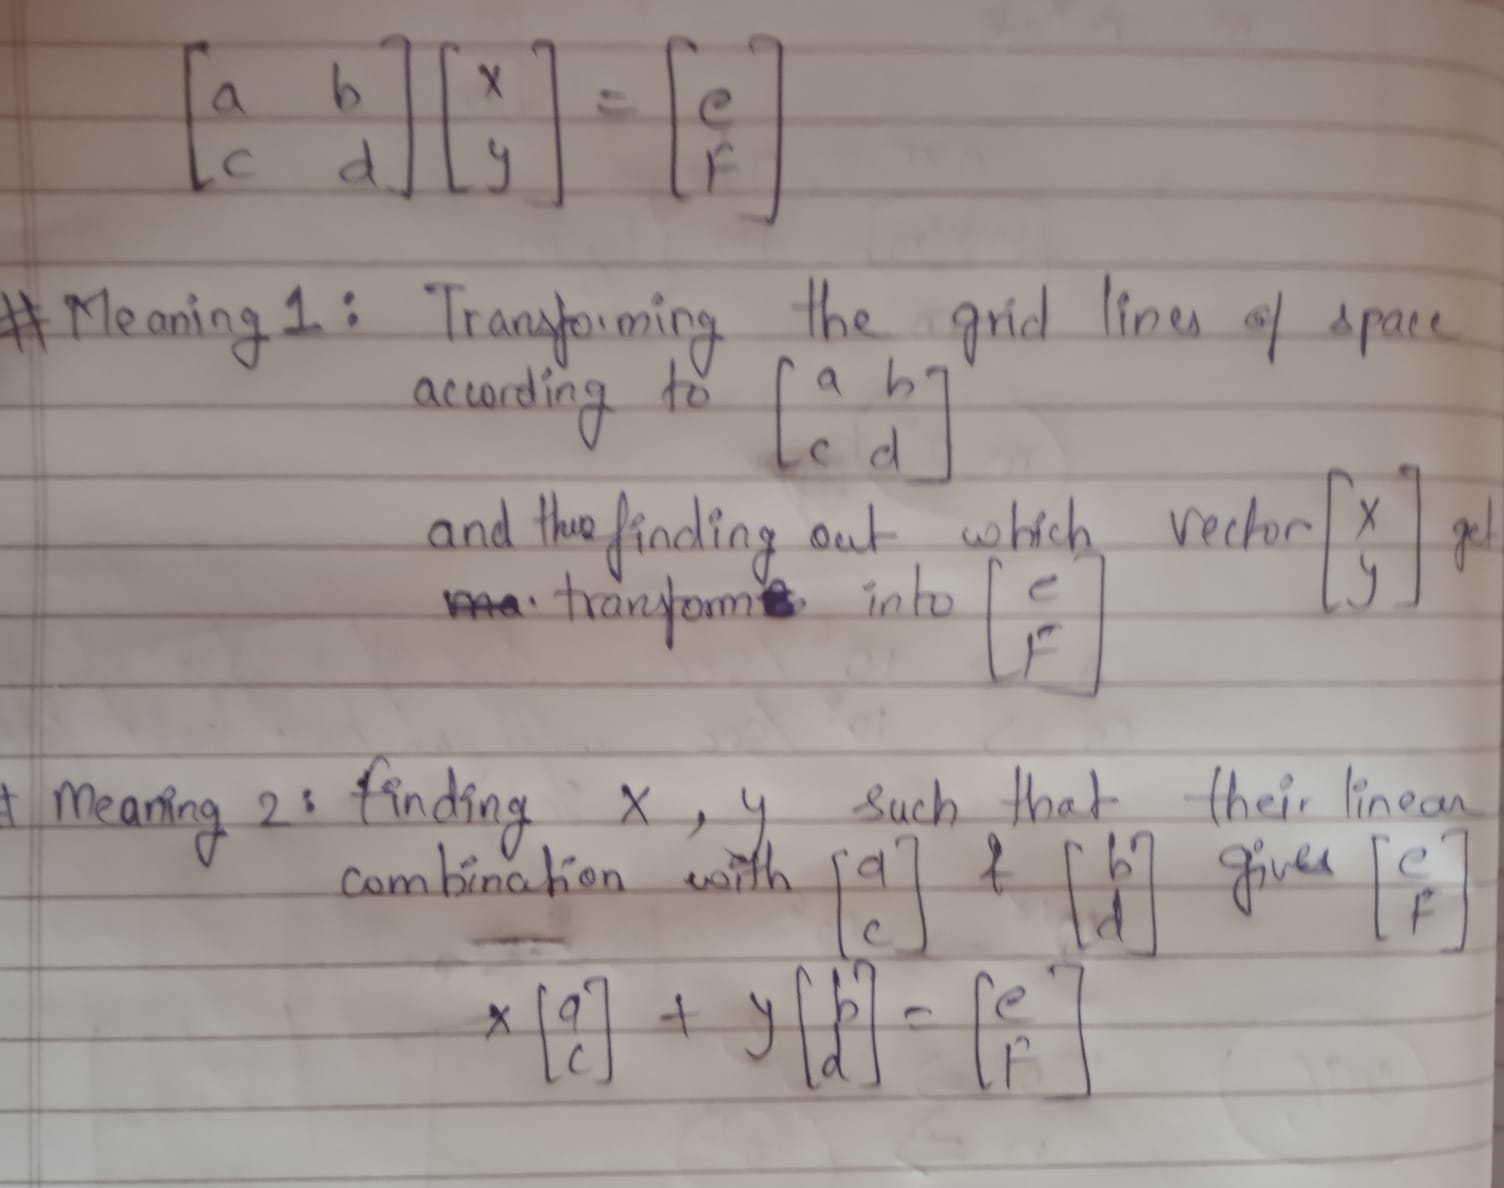 [a b c d] [x y] = [e F]
# Meaning 1: Transforming the grid lines of space
according to [a b c d]
and finding out which vector [x y] get
transform into [e F]
# Meaning 2: finding x, y such that their linear
combination with [a c] & [b d] gives [e F]
x [a c] + y [b d] = [e F]